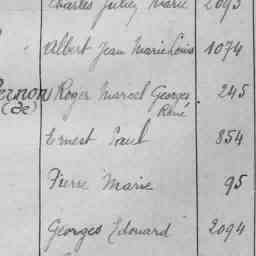 Charles Julien Marie 2093
Albert Jean Marie Louis 1074
Vernon Roger Marcel Georges 245
(de) René
Ernest Paul 854
Pierre Marie 95
Georges Edouard 2094